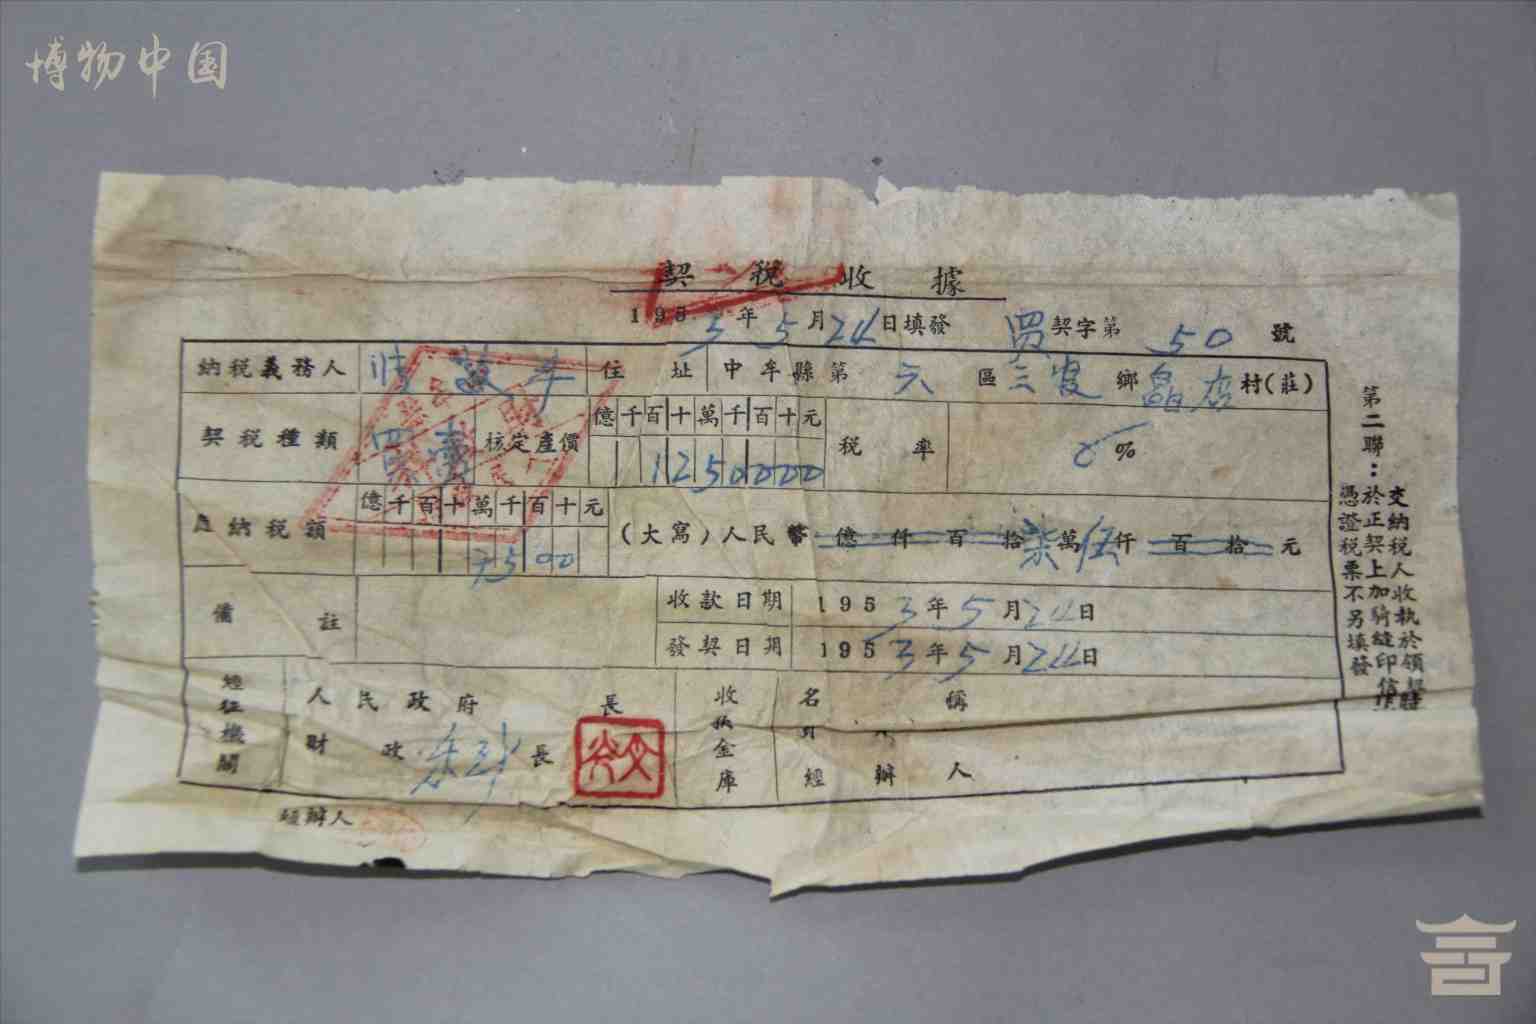 博物中国
契税收據
1953年5月24日填發 買契字第50號
納税義務人 萬年 住址 中牟縣第六區三官鄉店村(莊)
契税種類 買賣 核定產價 億千百十萬千百十元 1250000 税率 6%
應納税額 億千百十萬千百十元 75000 (大寫)人民幣 億仟百拾柒萬伍仟百拾元
備註 收款日期 1953年5月24日
發契日期 1953年5月24日
經征機關 人民政府 長
財政 長
收款金庫 名稱
經辦人
經辦人
第二聯:交納税人收執於領契時
於正契上加騎縫印信作
憑證税票不另填發